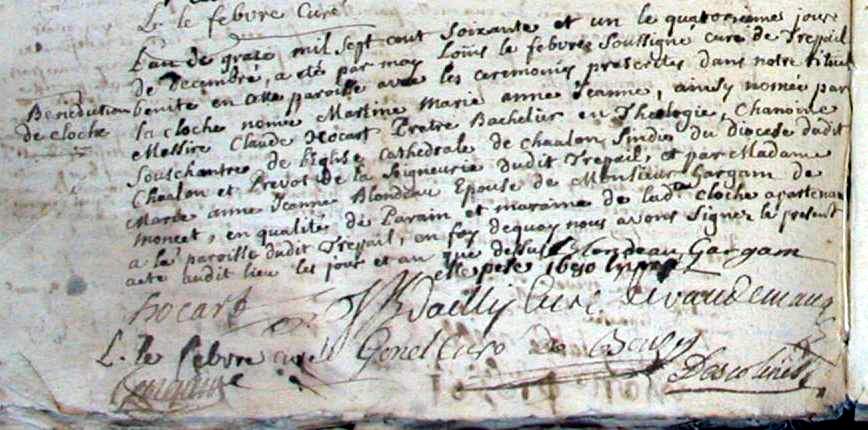 L. le febvre Curé
L'an de grace mil sept cent soixante et un le quatorzieme jour
de decembre, a eté par moy Loüis le febvre soussigné curé de Trepail
benite en cette paroisse avec les ceremonies prescrites dans notre rituel
Benediction de cloche
la cloche nomée Martine Marie anne Jeanne, ainsy nomée par
Messire Claude Hocart Pretre Bachelier en Theologie, Chanoine
Souschantre de l'Eglise Cathedrale de Chaalon, Sindic du Diocese dudit
Chaalon et Prevot de la Seigneurie dudit Trepail, et par Madame
Marie anne Jeanne Blondeau Epouse de Monsieur Gargam de
moncet, en qualité de Parain et maraine de lad.te cloche apartenan
a la paroisse dudit Trepail, en foy dequoy nous avons signez le present
acte audit lieu les jour et an que dessus Blondeau Gargam
elle pese 1650
hocart Dailly Curé de vaudemang
L. le febvre curé Genel Curé de Bouzy